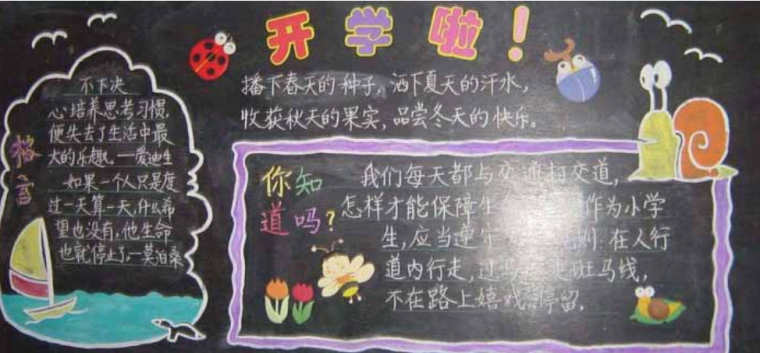 开学啦！
播下春天的种子，洒下夏天的汗水，
收获秋天的果实，品尝冬天的快乐。
格言
不下决
心培养思考习惯，
便失去了生活中最
大的乐趣。—爱迪生
如果一个人只是度
过一天算一天，什么希
望也没有，他生命
也就停止了—莫泊桑
你知
道吗？
我们每天都与交通打交道，
怎样才能保障生 作为小学
生，应当遵 则．在人行
道内行走，过 走斑马线，
不在路上嬉戏 停留．